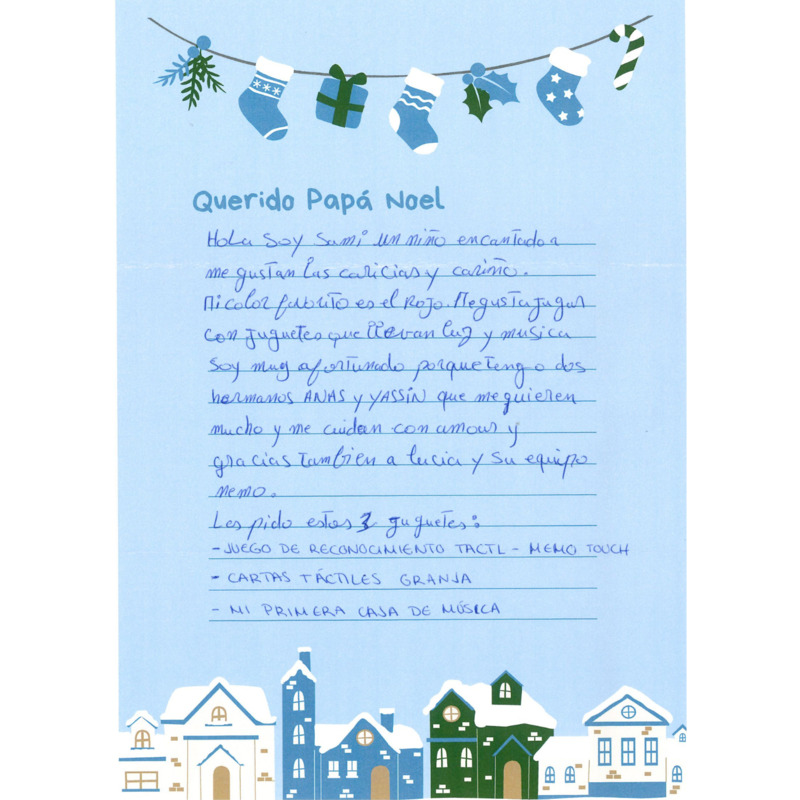 Querido Papá Noel
Hola Soy Sami un niño encantador
me gustan las caricias y cariño.
Mi color faborito es el Rojo. Me gusta jugar
con juguetes que llevan luz y musica
Soy muy afortunado porque tengo dos
hermanos ANAS y YASSÍN que me quieren
mucho y me cuidan con amour y
gracias tambien a lucia y su equipo
nemo.
Les pido estos 3 juguetes:
- JUEGO DE RECONOCIMIENTO TACTL - MEMO TOUCH
- CARTAS TÁCTILES GRANJA
- MI PRIMERA CAJA DE MÚSICA